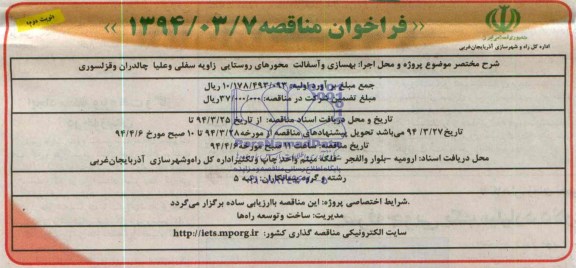 نوبت دوم
فراخوان مناقصه ۱۳۹۴/۰۳/۷
جمهوری اسلامی ایران
اداره کل راه و شهرسازی آذربایجان‌غربی
شرح مختصر موضوع پروژه و محل اجرا: بهسازی وآسفالت محورهای روستایی زاویه سفلی وعلیا چالدران وقزلسوری
جمع مبلغ برآورد اولیه: ۱۰/۱۷۸/۴۹۳/۰۹۳ ریال
مبلغ تضمین شرکت در مناقصه: ۳۷۰/۰۰۰/۰۰۰ ریال
تاریخ و محل دریافت اسناد مناقصه: از تاریخ ۹۴/۳/۲۵ تا
تاریخ ۹۴/۳/۲۷ می‌باشد تحویل پیشنهادهای مناقصه از مورخه ۹۴/۳/۲۸ تا ۱۰ صبح مورخ ۹۴/۴/۶
تاریخ مناقصه: ساعت ۱۱ صبح مورخه ۹۴/۴/۶
محل دریافت اسناد: ارومیه -بلوار والفجر -فلکه میثم واحد چاپ وتکثیر اداره کل راه‌وشهرسازی آذربایجان‌غربی
رشته و گروه پیمانکاران: رتبه ۵
.شرایط اختصاصی پروژه: این مناقصه باارزیابی ساده برگزار می‌گردد
مدیریت: ساخت و توسعه راه‌ها
سایت الکترونیکی مناقصه گذاری کشور: http://iets.mporg.ir